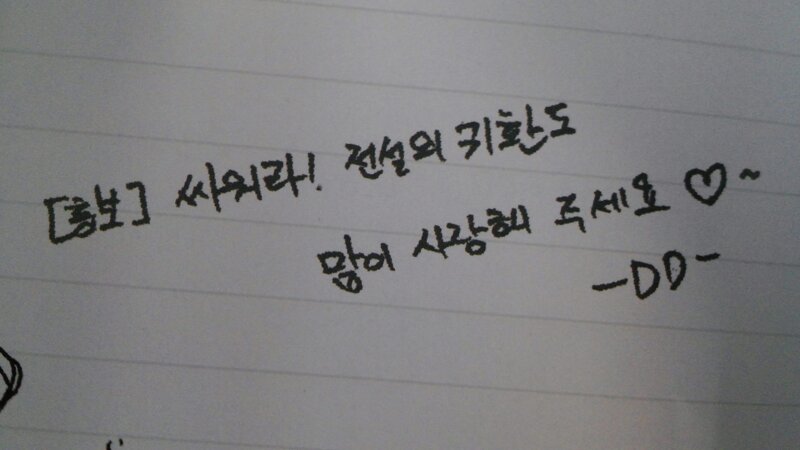 [홍보] 싸워라! 전설의 귀환도
많이 사랑해 주세요 ♡~
-DD-